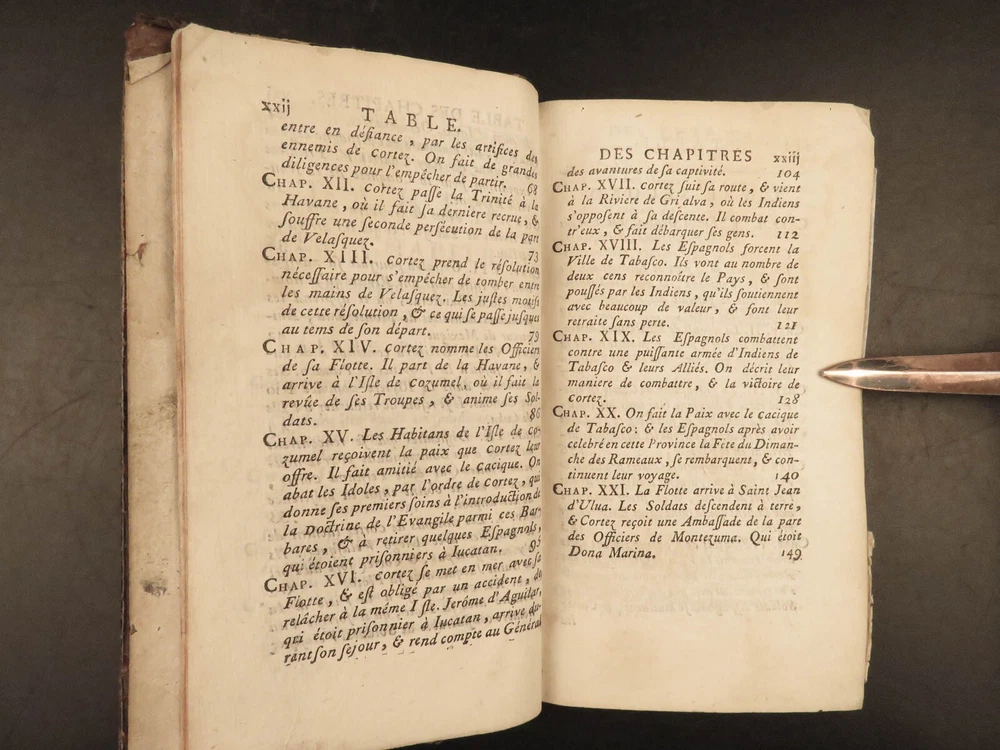 xxij
TABLE.
entre en défiance, par les artifices des
ennemis de Cortez. On fait de grandes
diligences pour l'empêcher de partir. 68
CHAP. XII. Cortez paſſe la Trinité à la
Havane, où il fait ſa derniere recrue, &
ſouffre une ſeconde perſécution de la part
de Velaſquez. 73
CHAP. XIII. Cortez prend le réſolution
néceſſaire pour s'empécher de tomber entre
les mains de Velaſquez. Les juſtes motifs
de cette réſolution, & ce qui ſe paſſe juſques
au tems de ſon départ. 79
CHAP. XIV. Cortez nomme les Officiers
de ſa Flotte. Il part de la Havane, &
arrive à l'Iſle de Cozumel, où il fait la
revûe de ſes Troupes, & anime ſes Sol-
dats. 86
CHAP. XV. Les Habitans de l'Iſle de Co-
zumel reçoivent la paix que Cortez leur
offre. Il fait amitié avec le Cacique. On
abat les Idoles, par l'ordre de Cortez, qui
donne ſes premiers ſoins à l'introduction de
la Doctrine de l'Evangile parmi ces Bar-
bares, & à retirer quelques Eſpagnols,
qui étoient priſonniers à Iucatan. 95
CHAP. XVI. Cortez ſe met en mer avec ſa
Flotte, & eſt obligé par un accident, de
relâcher à la même Iſle. Jerôme d'Aguilar,
qui étoit priſonnier à Iucatan, arrive du-
rant ſon ſejour, & rend compte au Général
DES CHAPITRES xxiij
des avantures de ſa captivité. 104
CHAP. XVII. Cortez ſuit ſa route, & vient
à la Riviere de Grialva, où les Indiens
s'oppoſent à ſa deſcente. Il combat con-
tr'eux, & fait débarquer ſes gens. 112
CHAP. XVIII. Les Eſpagnols forcent la
Ville de Tabaſco. Ils vont au nombre de
deux cens reconnoître le Pays, & ſont
pouſſés par les Indiens, qu'ils ſoutiennent
avec beaucoup de valeur, & font leur
retraite ſans perte. 121
CHAP. XIX. Les Eſpagnols combattent
contre une puiſſante armée d'Indiens de
Tabaſco & leurs Alliés. On décrit leur
maniere de combattre, & la victoire de
Cortez. 128
CHAP. XX. On fait la Paix avec le Cacique
de Tabaſco; & les Eſpagnols après avoir
celebré en cette Province la Fête du Diman-
che des Rameaux, ſe rembarquent, & con-
tinuent leur voyage. 140
CHAP. XXI. La Flotte arrive à Saint Jean
d'Ulua. Les Soldats deſcendent à terre,
& Cortez reçoit une Ambaſſade de la part
des Officiers de Montezuma. Qui étoit
Dona Marina. 149